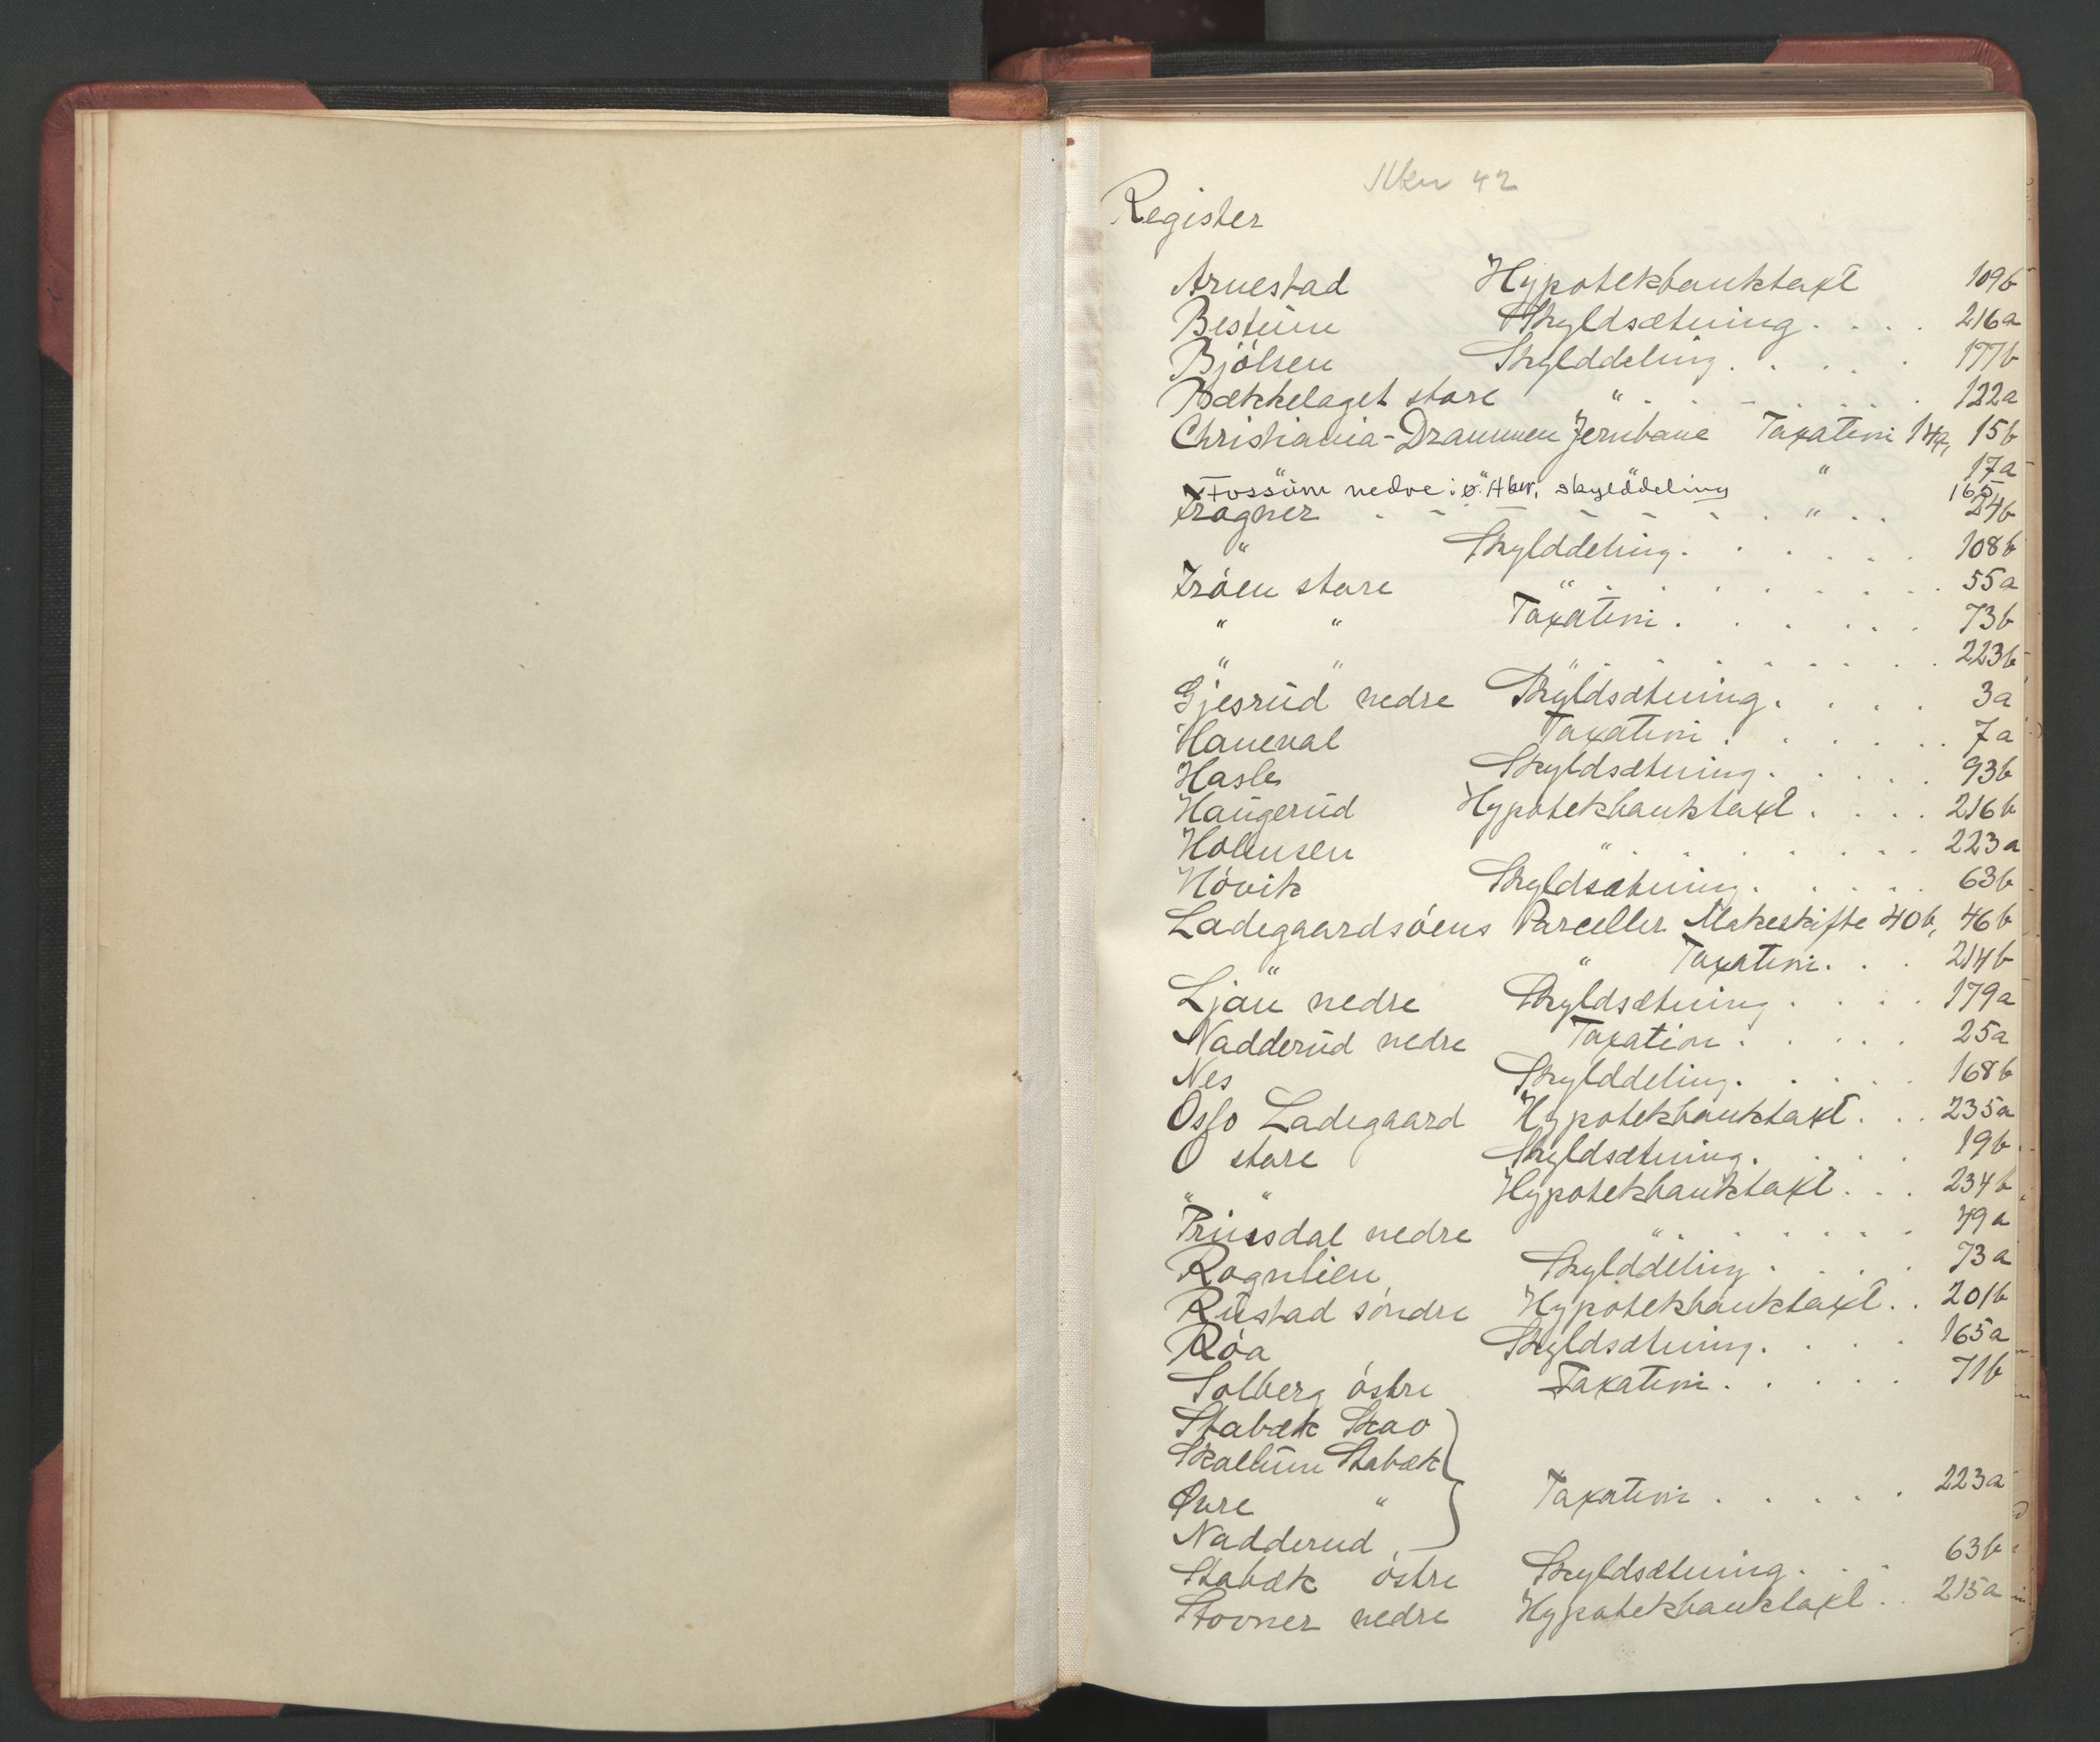 42
Register
Arnestad Hypotekbanktaxt 109b
Bestum Skyldsætning . . . . 216a
Bjölsen Skylddeling . . . . 177b
Bækkelaget store " . . . . . . . 122a
Christiania-Drammen Jernbane Taxation 14a, 15b
" " " 17a
Fossum nedre i Ø. Aker, skylddeling 165
Frogner . . . . . . . . " . . 24b
" Skylddeling . . . . . . 108b
Fröen store " . . . . . . . . 55a
" " Taxation . . . . . . 73b
" " " . . . . . . . . 223b
Gjesrud nedre Skyldsætning . . . . 3a
Haneval Taxation . . . . . . 7a
Hasle Skyldsætning . . . . . 93b
Haugerud Hypotekbanktaxt . . . . 216b
Holmsen " . . . . . . . . 223a
Hövik Skyldsætning . . . . . 63b
Ladegaardsöens Parceller Makeskifte 40b, 46b
" " Taxation . . . 214b
Ljan nedre Skyldsætning . . . . 179a
Nadderud nedre Taxation . . . . . 25a
Nes Skylddeling . . . . . 168b
Oslo Ladegaard Hypotekbanktaxt . . . 235a
O store Skyldsætning . . . . 19b
" " Hypotekbanktaxt . . . 234b
Prinsdal nedre " . . . . . . . 49a
Rognlien Skylddeling . . . . 73a
Rustad söndre Hypotekbanktaxt . . 201b
Röa Skyldsætning . . . . 165a
Solberg östre Taxation . . . . . 71b
Stabæk Skao
Skallum Stabæk
Øvre " Taxation . . . . . 223a
Nadderud
Stabæk östre Skyldsætning . . . 63b
Stovner nedre Hypotekbanktaxt . . 215a